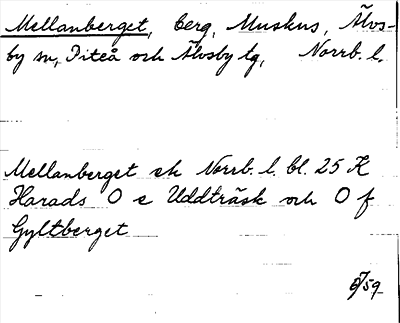 Mellanberget, berg, Muskus, Älvs-
by sn, Piteå och Älvsby tg, Norrb. l.
Mellanberget ek Norrb. l. bl. 25 K
Harads O e Uddträsk och O f
Gyltberget
59